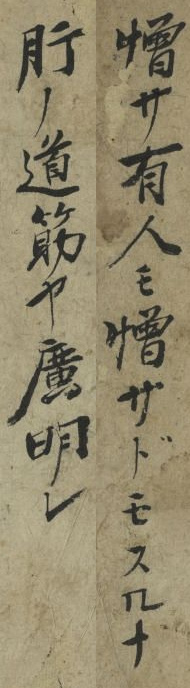 憎サ有人モ憎サドモスルナ
肝ノ道筋ヤ廣明レ